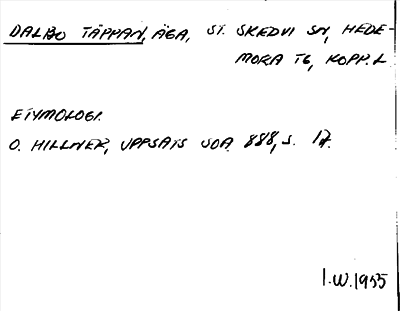 DALBO TÄPPAN, ÄGA, ST. SKEDVI SN, HEDE-
MORA TG, KOPP. L
ETYMOLOGI.
O. HILLNER, UPPSATS UOA 888, S. 17.
I.W. 1955